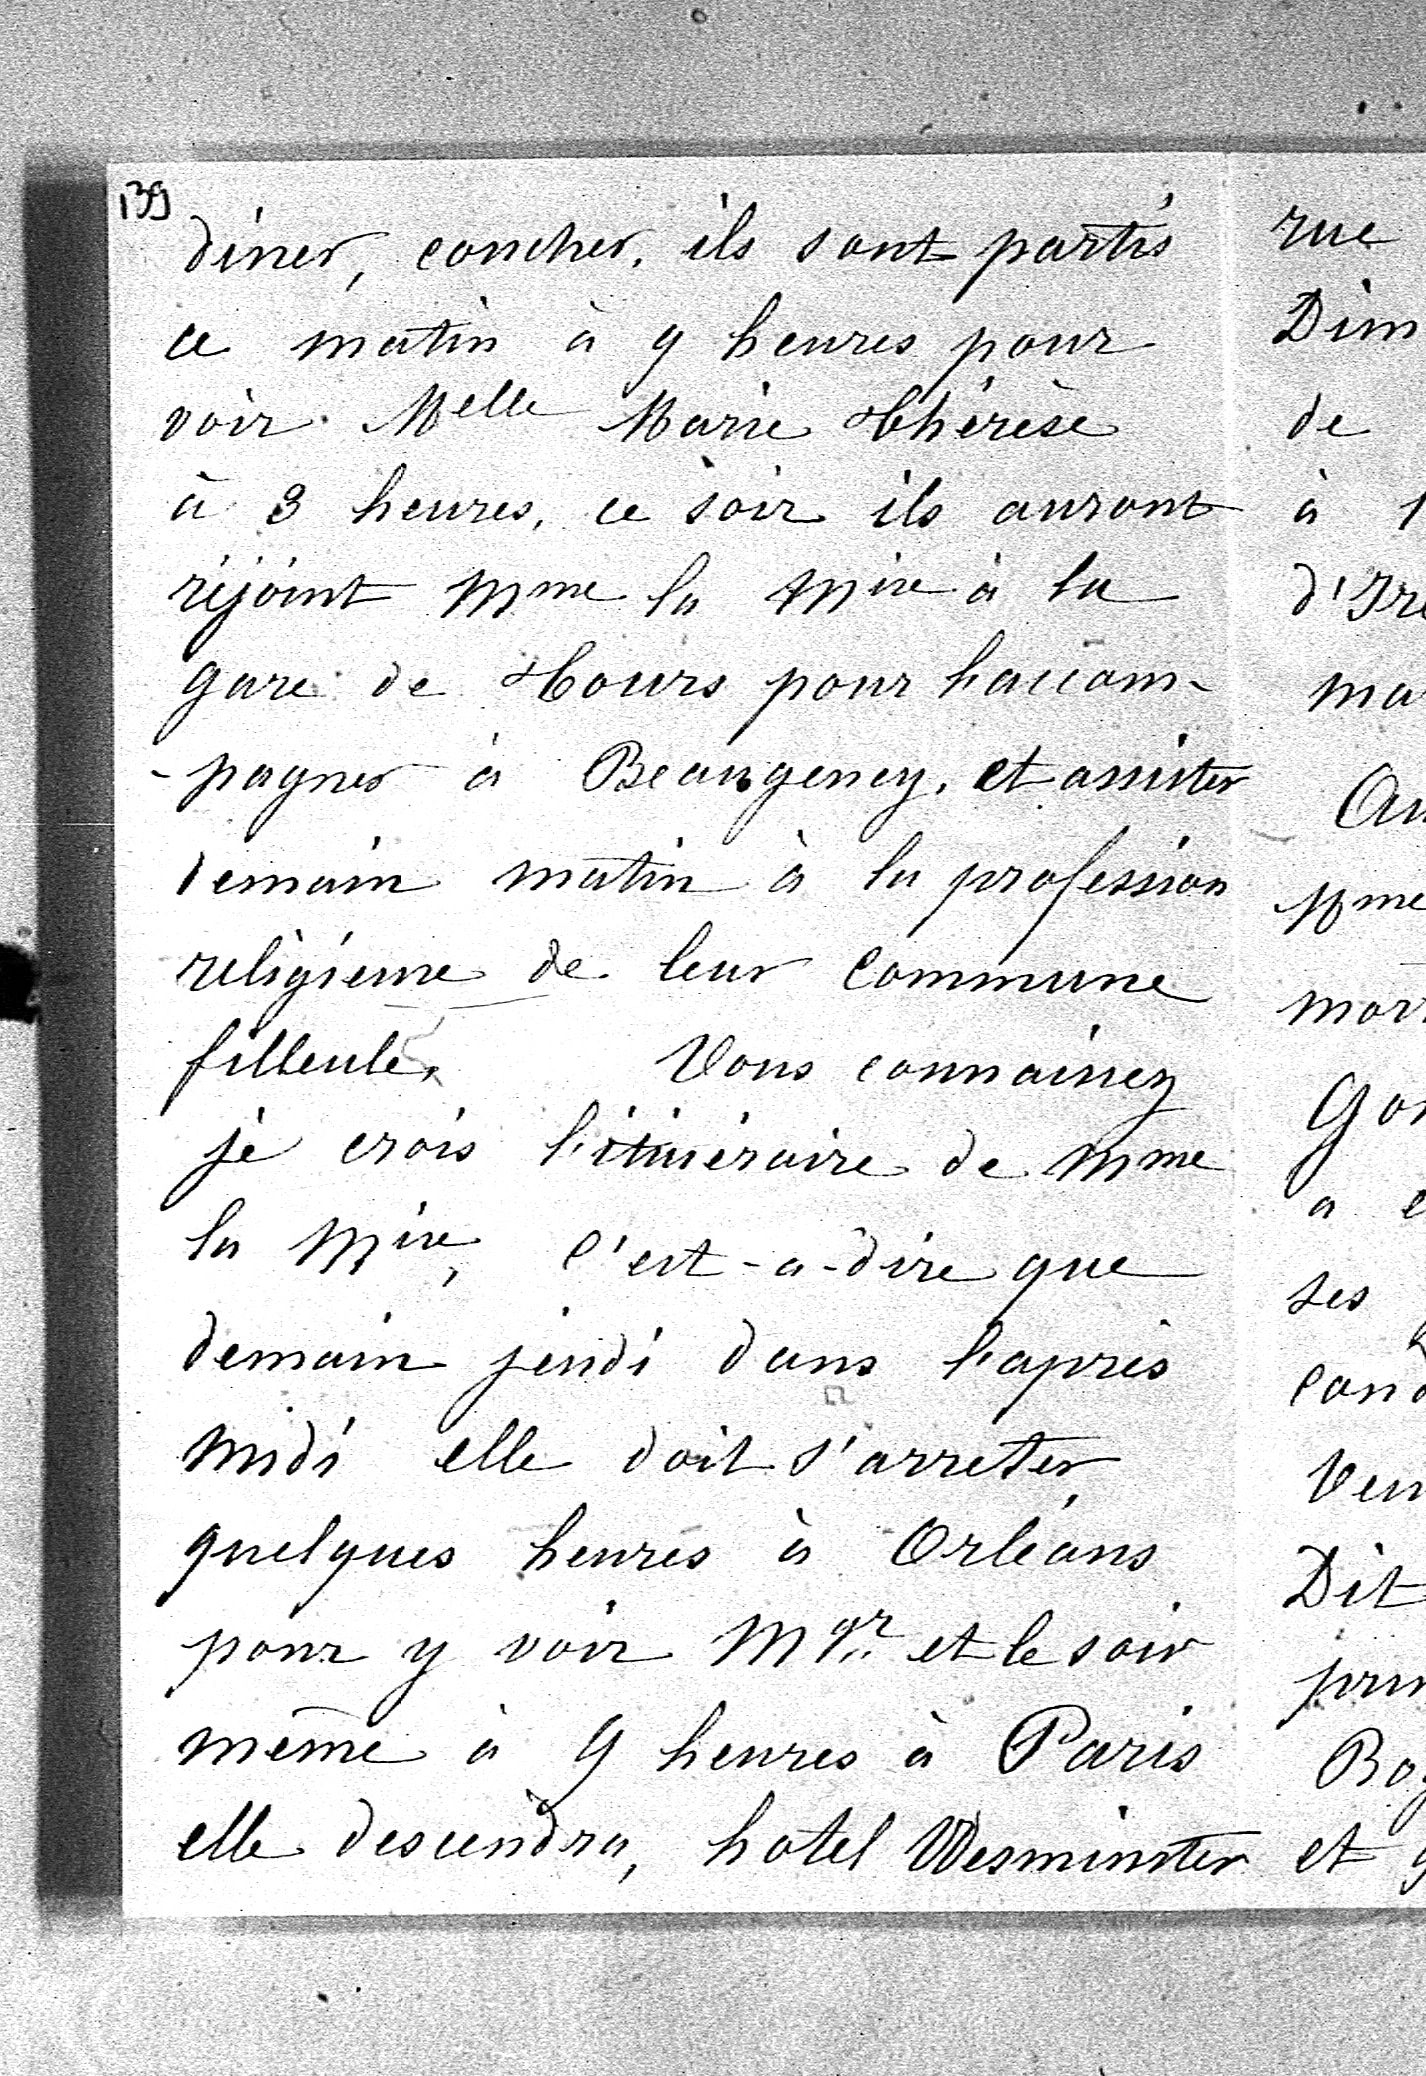 139
diner, coucher. ils sont partis
ce matin à 9 heures pour
voir Melle Marie Thérèse
à 3 heures, ce soir ils auront
réjoint Mme la Mise à la
gare de Tours pour l'accom-
-pagner à Beaugency. et assister
demain matin à la profession
religieuse de leur commune
filleule. Vous connaissez
je crois l'itinéraire de Mme
la Mise, C'est-a-dire que
demain jeudi dans l'après
midi elle doit s'arreter
quelques heures à Orléans
pour y voir Mgr. et le soir
même à 9 heures à Paris
elle descendra, hotel Wesminster
rue
Dim
de
à 1
d'Ire
ma
Mme
mor
a
ses
Dit
et